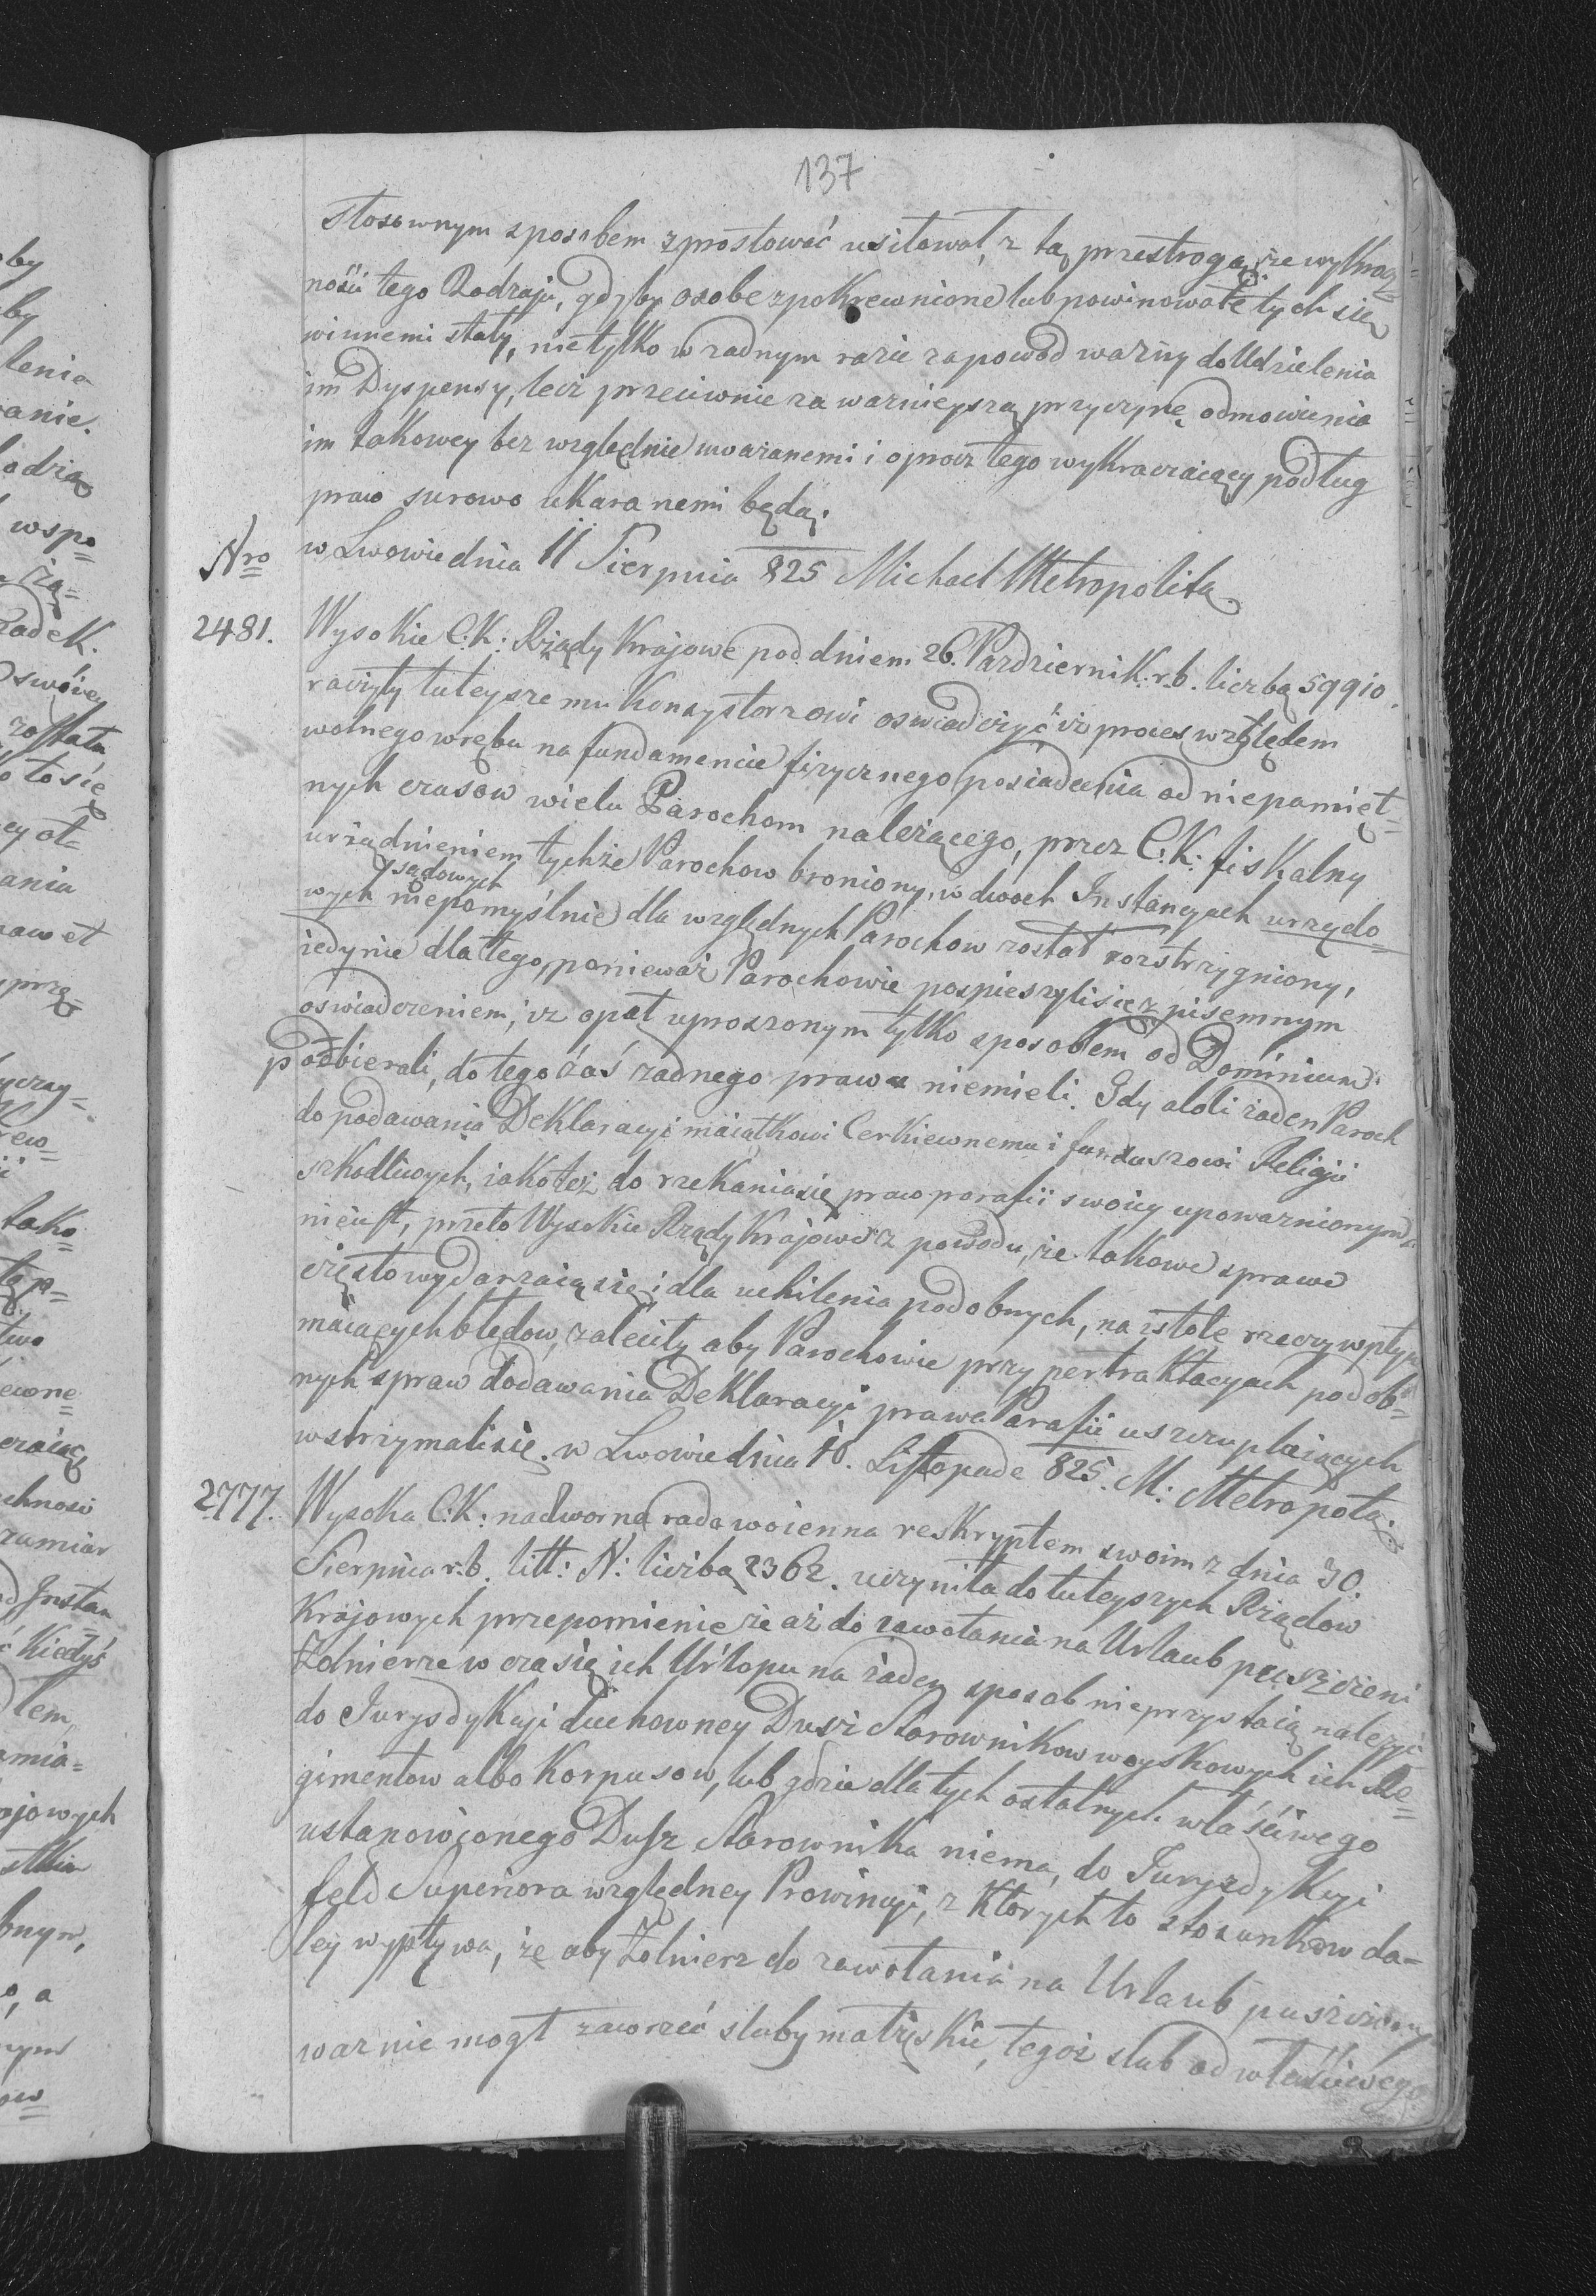 137
stosownym sposobem zprostować usiłował, z tą przestrogą, że wykrocz=
ności tego Rodzaju, gdyby osobe zpokrewnione lub powinowate tych się
winnemi stały, nietylko w żadnym razie za powód ważny do Udzielenia
im Dyspensy, lecz przeciwnie za ważnieyszą przyczynę odmowienia
im takowey bez względnie uważanemi i oprocz tego wykraczaiący podług
praw surowo ukaranemi będą.
w Lwowie dnia 11 Sierpnia 825 Michael Metropolita
Nro
2481. Wysokie C: K: Rządy Krajowe pod dniem 26. Pazdziernik: r. b. liczbą 59910.
raczyły tuteyszemu Konsystorzowi oswiadczyć iż proces względem
wolnego wrębu na fundamencie fizycznego posiadania od niepamięt=
nych czasow wielu Parochom należącego, przez C: K: fiskalny
urządnieniem tychże Parochow broniony, w dwoch Instancyach urzędo=
sądowych
wych niepomyślnie dla względnych Parochow został rozstrzygniony,
iedynie dla tego, ponieważ Parochowie pospieszyli się z pisemnym
oswiadczeniem, iż opał uproszonym tylko sposobem od Dominium
podbierali, do tego zaś żadnego prawa niemieli. Gdy aloli żaden Paroch
do podawania Deklaracyi maiątkowi Cerkiewnemu i funduszowi Religii
szkodliwych, iako też do rzekania się praw parafii swoiey upoważnionym
nieiest, przeto Wysokie Rządy Krajowe z powodu, że takowe sprawe
często wydarzaią się i dla uchilenia podobnych, na istotę rzeczy wpływ
maiących błędow, zaleciły aby Parochowie przy pertraktacyach podob=
nych spraw dodawania Deklaracyi prawa Parafii uszczuplaiących
wstrzymali się. w Lwowie dnia 10. Listopada 825. M: Metropota.
2777. Wysoka C: K: nadworna rada woienna reskryptem swoim z dnia 30.
Sierpnia r: b. litt: N: liczbą 2362. uczyniła do tuteyszych Rządow
Krajowych przepomienie że aż do zawołania na Urlaub puszczeni
Żołnierze w czasię ich Urlopu na żaden sposob nieprzystaią należyć
do Jurysdykcyi duchowney Dusz Starownikow woyskowych ich Re=
gimentow albo Korpusow, lub gdzie dla tych ostatnych właściwego
ustanowionego Dusz Starownika niema, do Juryzdykcyi
feld Superiora względney Prowincyi, z ktorych to stosunkow da=
ley wypływa, że aby Żołnierz do zawołania na Urlaub puszczony
ważnie mogł zawrzeć sluby małżeskie, tegoż slub od właściwego